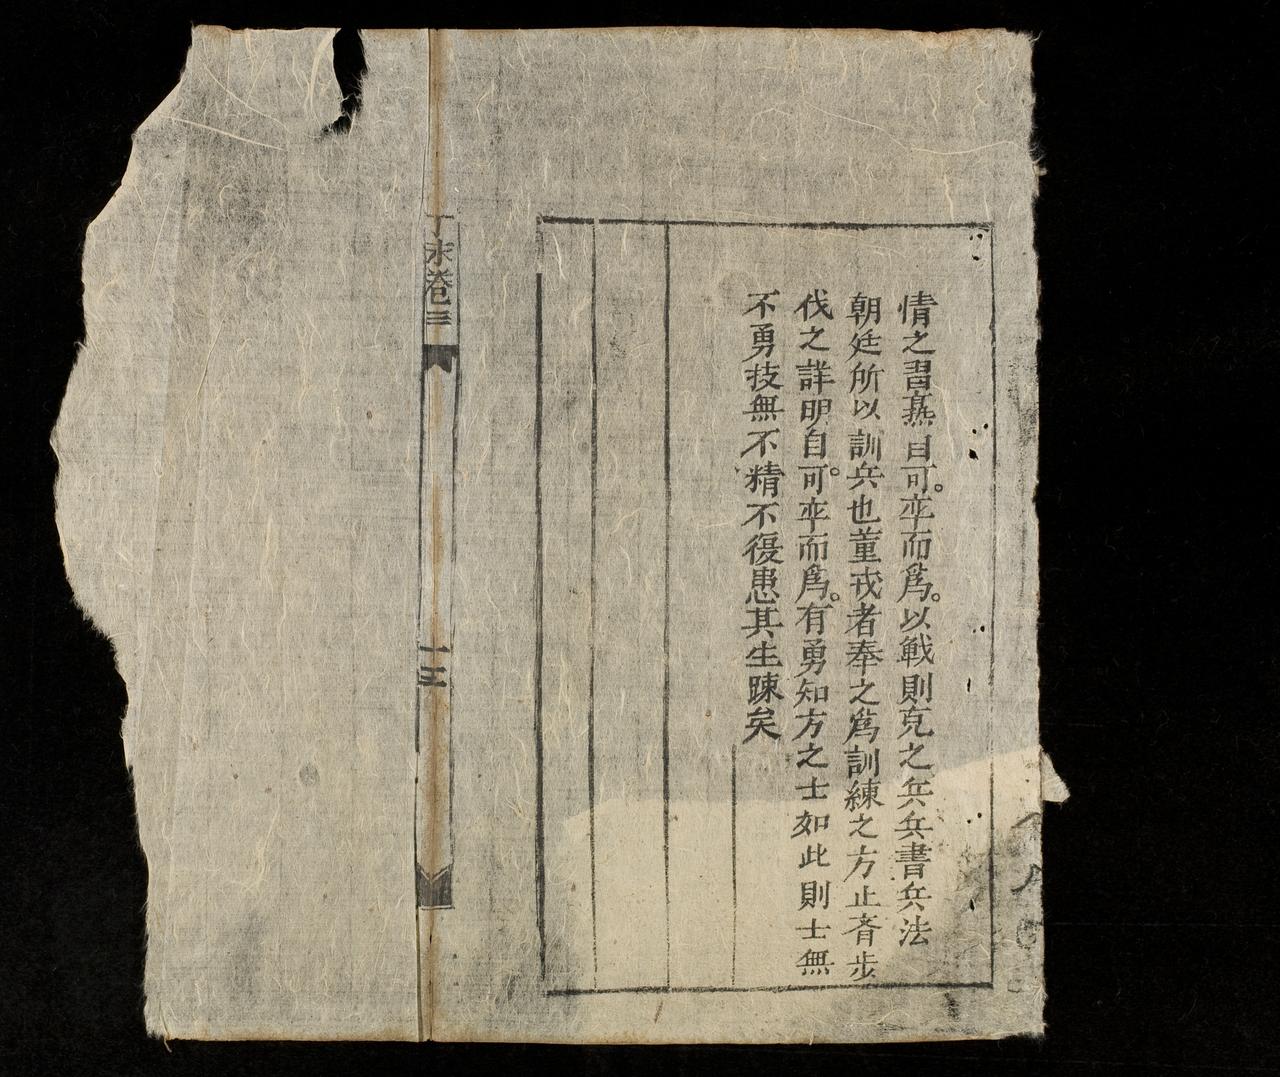 情之習熟目可。卒而爲。以戰則克之兵兵書兵法
朝廷所以訓兵也董戎者奉之爲訓練之方止齊步
伐之詳明自可。卒而爲。有勇知方之士如此則士無
不勇技無不精不復患其生踈矣
丁未卷三
十三